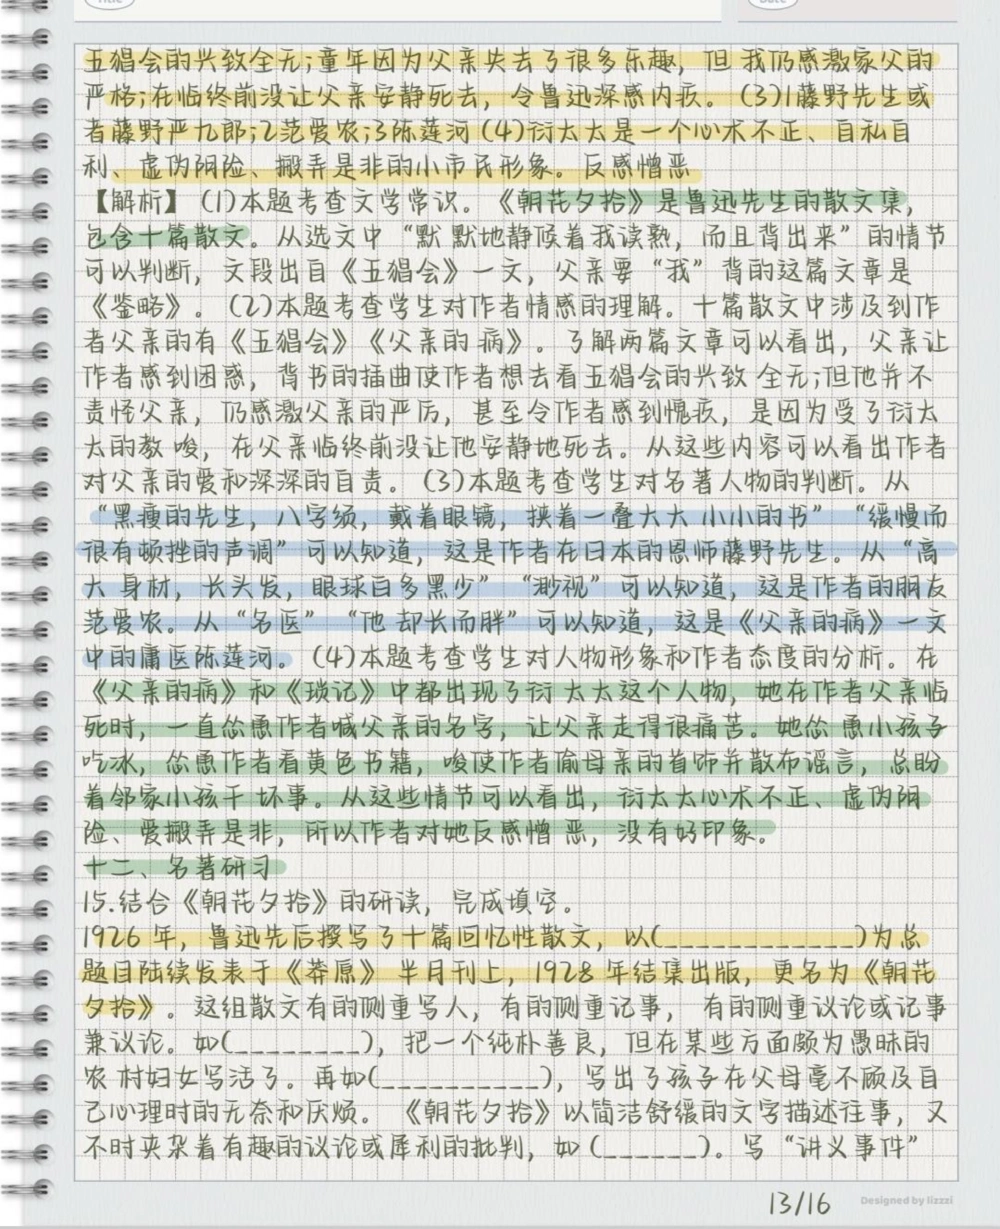 五猖会的兴致全无;童年因为父亲失去了很多乐趣，但 我仍感激家父的
严格;在临终前没让父亲安静死去，令鲁迅深感内疚。 (3)1藤野先生或
者藤野严九郎;2范爱农;3陈莲河 (4)衍太太是一个心术不正、自私自
利、虚伪阴险、搬弄是非的小市民形象。反感憎恶
【解析】 (1)本题考查文学常识。《朝花夕拾》是鲁迅先生的散文集，
包含十篇散文。从选文中 “默 默地静候着我读熟，而且背出来” 的情节
可以判断，文段出自《五猖会》一文，父亲要 “我” 背的这篇文章是
《鉴略》。 (2)本题考查学生对作者情感的理解。十篇散文中涉及到作
者父亲的有《五猖会》《父亲的 病》。了解两篇文章可以看出，父亲让
作者感到困惑，背书的插曲使作者想去看五猖会的兴致 全无;但他并不
责怪父亲，仍感激父亲的严厉，甚至令作者感到愧疚，是因为受了衍太
太的教 唆，在父亲临终前没让他安静地死去。从这些内容可以看出作者
对父亲的爱和深深的自责。 (3)本题考查学生对名著人物的判断。从
“黑瘦的先生，八字须，戴着眼镜，挟着一叠大大 小小的书” “缓慢而
很有顿挫的声调” 可以知道，这是作者在日本的恩师藤野先生。从 “高
大 身材，长头发，眼球白多黑少” “渺视” 可以知道，这是作者的朋友
范爱农。从 “名医” “他 却长而胖” 可以知道，这是《父亲的病》一文
中的庸医陈莲河。 (4)本题考查学生对人物形象和作者态度的分析。在
《父亲的病》和《琐记》中都出现了衍 太太这个人物，她在作者父亲临
死时，一直怂恿作者喊父亲的名字，让父亲走得很痛苦。她怂 恿小孩子
吃冰，怂恿作者看黄色书籍，唆使作者偷母亲的首饰并散布谣言，总盼
着邻家小孩干 坏事。从这些情节可以看出，衍太太心术不正、虚伪阴
险、爱搬弄是非，所以作者对她反感憎 恶，没有好印象。
十二、名著研习
15.结合《朝花夕拾》的研读，完成填空。
1926 年，鲁迅先后撰写了十篇回忆性散文，以(_____________)为总
题目陆续发表于《莽原》 半月刊上，1928 年结集出版，更名为《朝花
夕拾》。这组散文有的侧重写人，有的侧重记事， 有的侧重议论或记事
兼议论。如(_________)，把一个纯朴善良，但在某些方面颇为愚昧的
农 村妇女写活了。再如(___________)，写出了孩子在父母毫不顾及自
己心理时的无奈和厌烦。 《朝花夕拾》以简洁舒缓的文字描述往事，又
不时夹杂着有趣的议论或犀利的批判，如 (______)。写 “讲义事件”
13/16
Designed by lizzzi